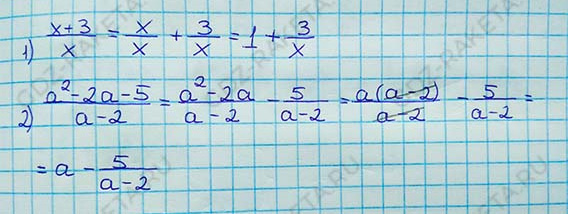 1) (x+3)/x = x/x + 3/x = 1 + 3/x
2) (a²-2a-5)/(a-2) = (a²-2a)/(a-2) - 5/(a-2) = a(a-2)/(a-2) - 5/(a-2) =
= a - 5/(a-2)
GDZ-RAKETA.RU